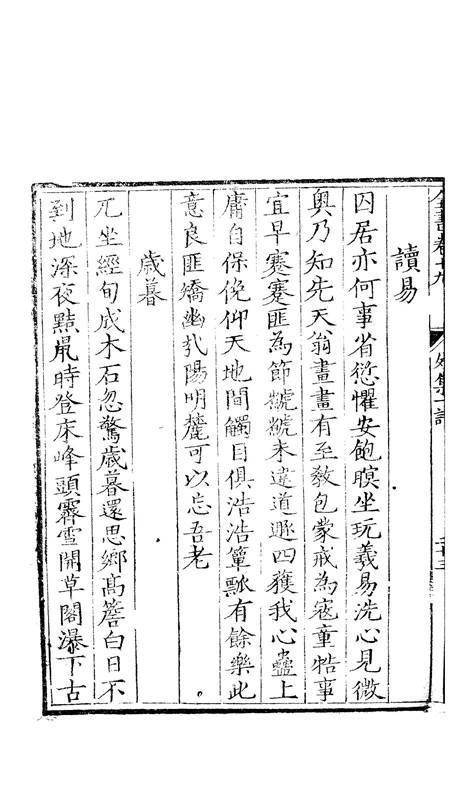 全書卷十九
外集一詩
讀易
囚居亦何事省愆懼安飽瞑坐玩羲易洗心見微
奥乃知先天翁畫畫有至敎包蒙戒為寇童牿事
宜早蹇蹇匪為節虩虩未違道遯四獲我心蠱上
庸自保俛仰天地間觸目俱浩浩簞瓢有餘樂此
意良匪矯幽哉陽明麓可以忘吾老
歳暮
兀坐經旬成木石忽驚歳暮還思鄉髙簷白日不
到地深夜黠鼠時登床峰頭霽雪開草閣瀑下古